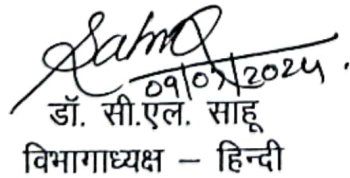 09/07/2024.
डॉ. सी.एल. साहू
विभागाध्यक्ष – हिन्दी